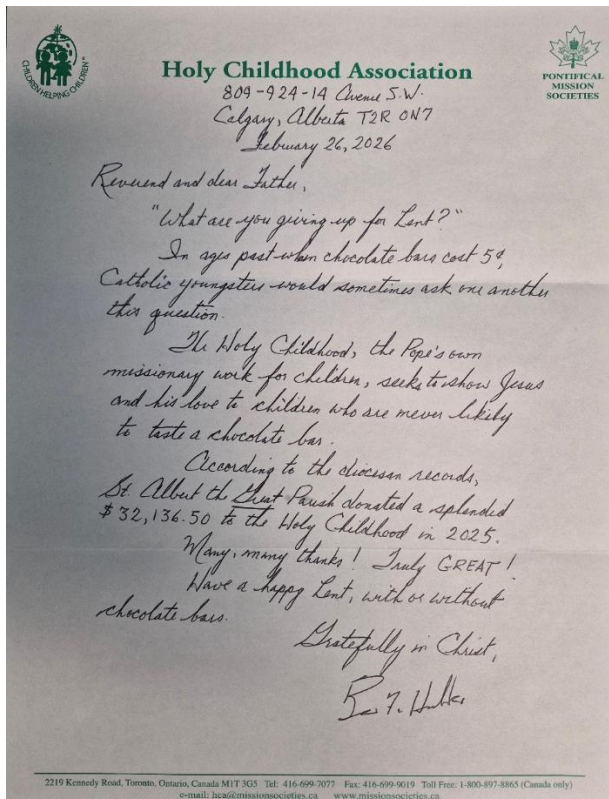 CHILDREN HELPING CHILDREN
Holy Childhood Association
PONTIFICAL
MISSION
SOCIETIES
809-924-14 Avenue S.W.
Calgary, Alberta T2R 0N7
February 26, 2026
Reverend and dear Father,
"What are you giving up for Lent?"
In ages past when chocolate bars cost 5¢,
Catholic youngsters would sometimes ask one another
this question.
The Holy Childhood, the Pope's own
missionary work for children, seeks to show Jesus
and his love to children who are never likely
to taste a chocolate bar.
According to the diocesan records,
St. Albert the Great Parish donated a splendid
$32,136.50 to the Holy Childhood in 2025.
Many, many thanks! Truly GREAT!
Have a happy Lent, with or without
chocolate bars.
Gratefully in Christ,
2219 Kennedy Road, Toronto, Ontario, Canada M1T 3G5 Tel: 416-699-7077 Fax: 416-699-9019 Toll Free: 1-800-897-8865 (Canada only)
e-mail: hca@missionsocieties.ca www.missionsocieties.ca